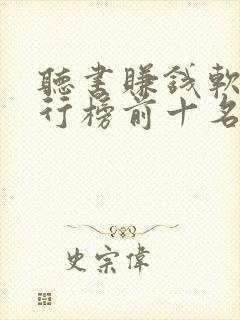 聽書賺錢軟
行榜前十名
史宗偉